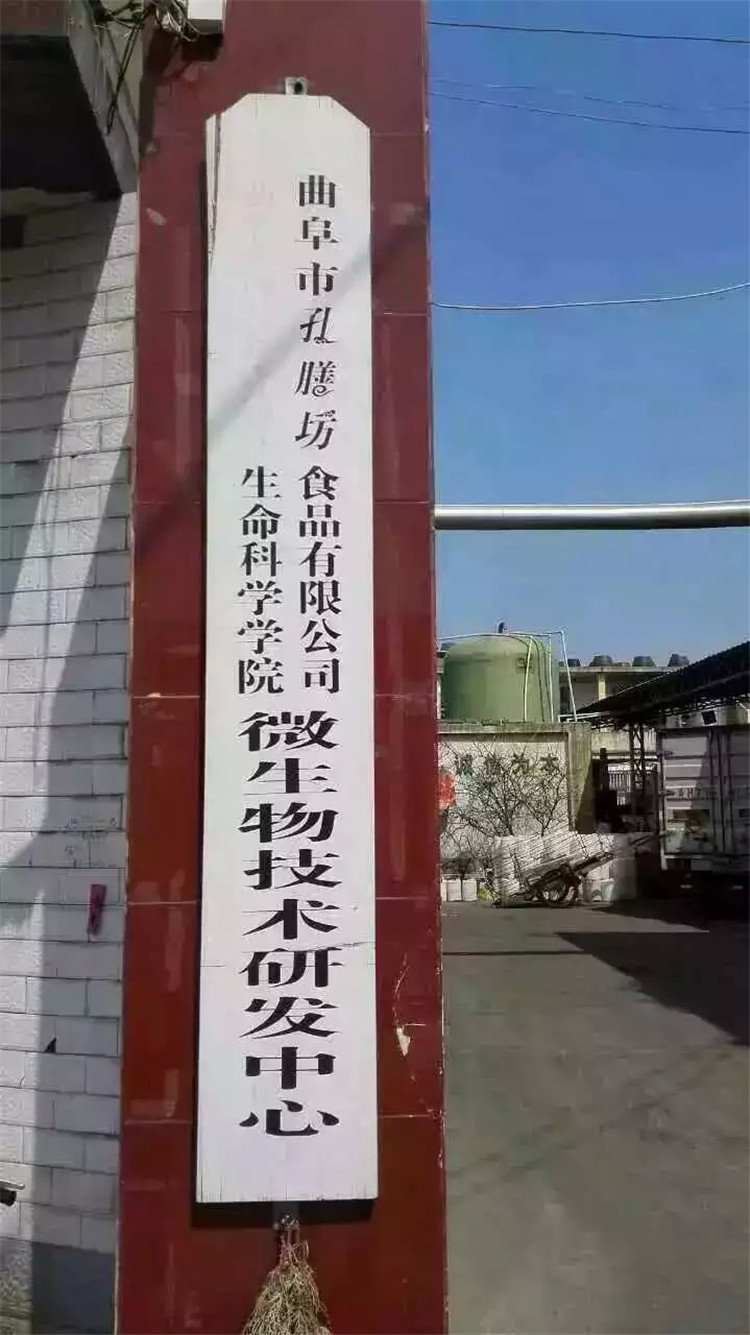 曲阜市孔膳坊食品有限公司
生命科学学院
微生物技术研发中心
为本